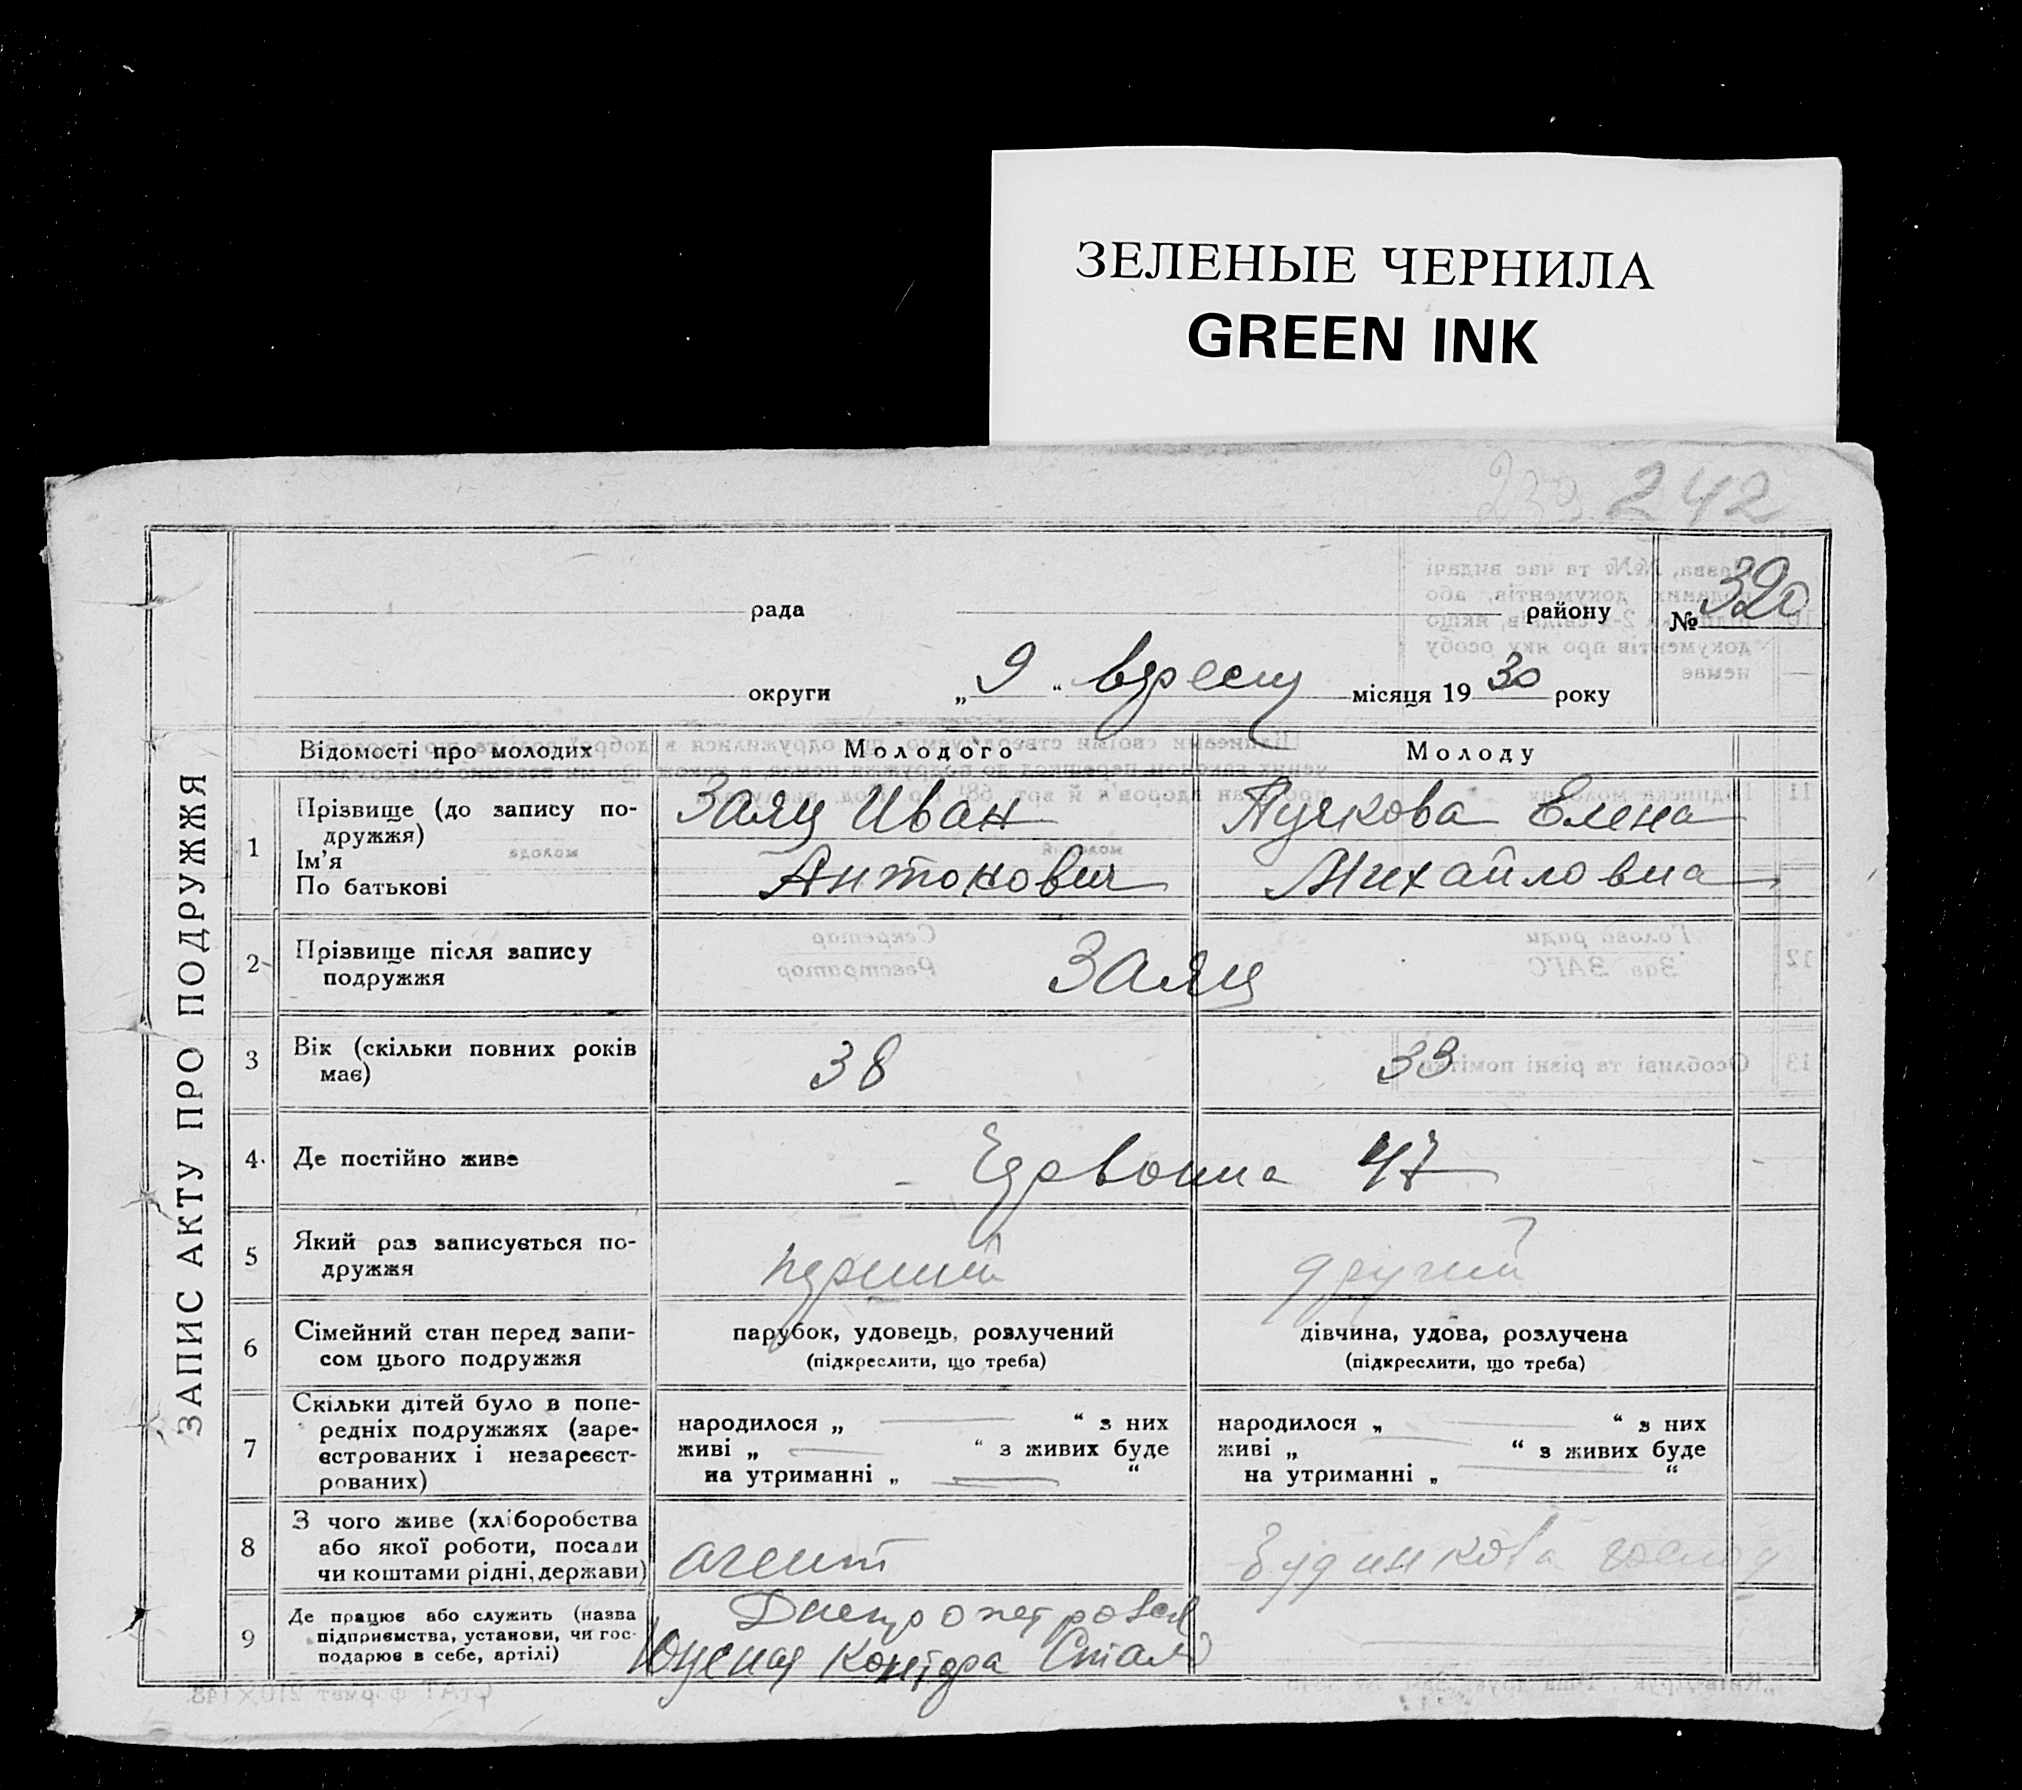 ЗЕЛЕНЫЕ ЧЕРНИЛА
GREEN INK
239 242
рада району № 320
округи „ 9 “ вересня місяця 19 30 року
ЗАПИС АКТУ ПРО ПОДРУЖЖЯ
Відомості про молодих Молодого Молоду
1 Прізвище (до запису по-
дружжя)
Ім’я
По батькові
Заяц Иван
Антонович
Пучкова Елена
Михайловна
2 Прізвище після запису
подружжя
Заяц
3 Вік (скільки повних років
має)
38 33
4 Де постійно живе
47
5 Який раз записується по-
дружжя
перший другий
6 Сімейний стан перед запи-
сом цього подружжя
парубок, удовець, розлучений
(підкреслити, що треба)
дівчина, удова, розлучена
(підкреслити, що треба)
7 Скільки дітей було в попе-
редніх подружжях (заре-
єстрованих і незареєст-
рованих)
народилося „ “ з них
живі „ “ з живих буде
на утриманні „ “
народилося „ “ з них
живі „ “ з живих буде
на утриманні „ “
8 З чого живе (хліборобства
або якої роботи, посади
чи коштами рідні, держави)
агент
9 Де працює або служить (назва
підприємства, установи, чи гос-
подарює в себе, артілі)
контора Сталь